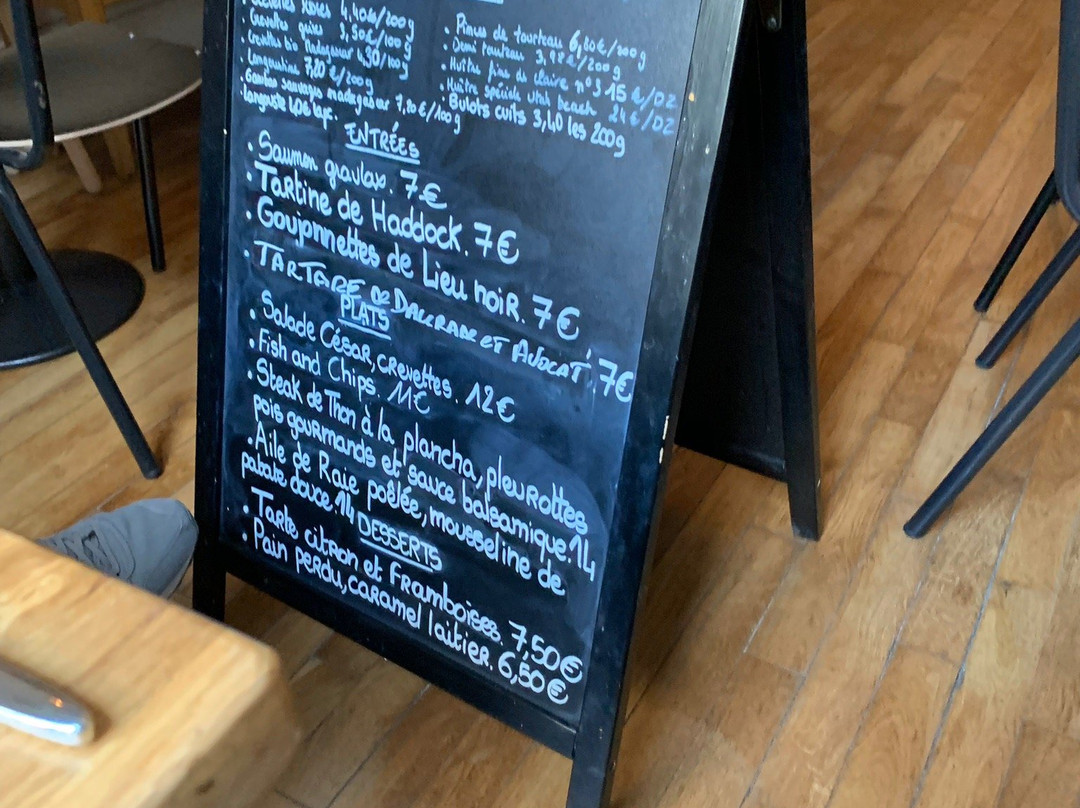 roses 4,40€/200g
Crevettes grises 3,50€/100g
Crevettes bio Madagascar 4,30/100g
Langoustine 7,20€/200g
Gambas sauvages madagascar 7,80€/100g
Langouste
• Pinces de tourteau 6,80€/200g
• Demi tourteau 3,98€/200g
• Huître fine de claire n°3 15€/DZ
• Huître spéciale Utah beach 24€/DZ
• Bulots cuits 3,40 les 200g
ENTRÉES
• Saumon gravlax. 7€
• Tartine de Haddock. 7€
• Goujonnettes de Lieu noir. 7€
• TARTARE DE et AVOCAT. 7€
PLATS
• Salade César, crevettes. 12€
• Fish and Chips. 11€
• Steak de Thon à la plancha, pleurottes
pois gourmands et sauce balsamique. 14
• Aile de Raie poêlée, mousseline de
patate douce. 14
DESSERTS
• Tarte citron et Framboises. 7,50€
• Pain perdu, caramel laitier. 6,50€